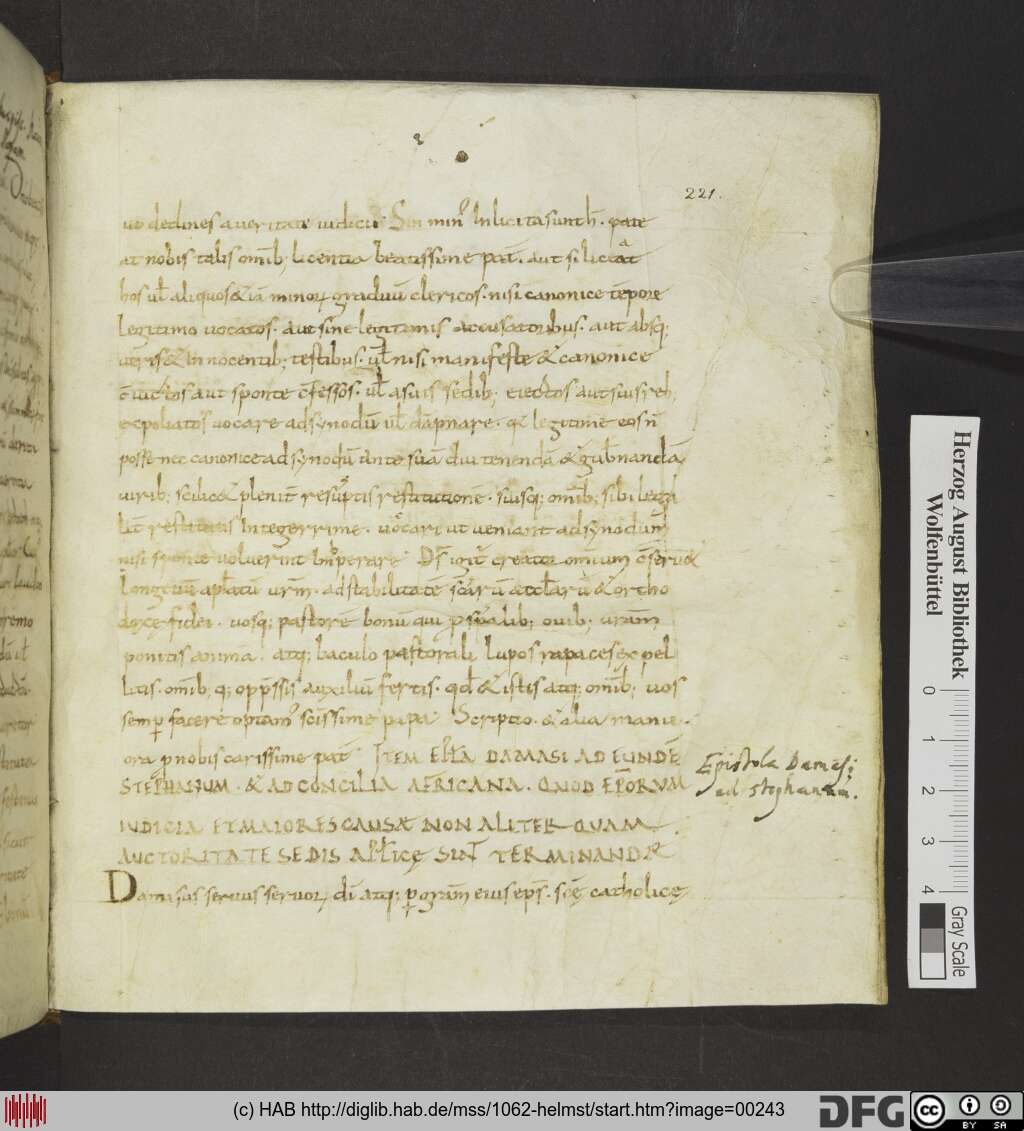 221.
ut declines a veritate iudicii. Sin min' In licita sunt h. pate
at nobis talis omib; licentia beatissime pat. aut si liceat
hos ul aliquos & iā minorū graduū clericos. nisi canonice tēpore
legitimo vocatos. aut sine legitimis accusatoribus. aut absq;
veris & Innocentib; testibus. ul nisi manifeste & canonice
c̄victos aut sponte c̄fessos. ul a suis sedib; eiectos aut suis reb;
expoliatos vocare ad synodū ul dāpnare. q legitime eos n̄
posse nec canonice ad synodū ante suā diu tenendā & gubnandā
virib; scilic& plenit resūptis restitutionē. suisq; omib; sibi legal
lit restitutis Integerrime. vocari ut veniant ad synodum
nisi sponte voluerint Imperare. Ds igit creator omnium c̄serv&
longevū aplatū vrm. ad stabilitatē scārū ecclarū & ortho
doxę fidei. vosq; pastorē bonū qui p spualib; ovib; vrām
ponitis animā. atq; baculo pastorali lupos rapaces expel
litis. omib; q; oppssis auxiliū fertis. qd & istis atq; omib; vos
semp facere optam' scissime papa. Scriptio. & alia manu.
ora p nobis carissime pat. ITEM EPLA DAMASI AD EUNDĒ
STEPHANUM. & AD CONCILIA AFRICANA. QUOD EPORUM
IUDICIA ET MAIORES CAUSAE NON ALITER QUAM
AUCTORITATE SEDIS APLICĘ SINT TERMINANDAE
Damasus servus servorū dī atq; p gram eius eps. scę catholicę
Epistola Damasi
ad stephanum.
Herzog August Bibliothek
Wolfenbüttel
0 1 2 3 4
Gray Scale
(c) HAB http://diglib.hab.de/mss/1062-helmst/start.htm?image=00243
DFG
cc BY SA